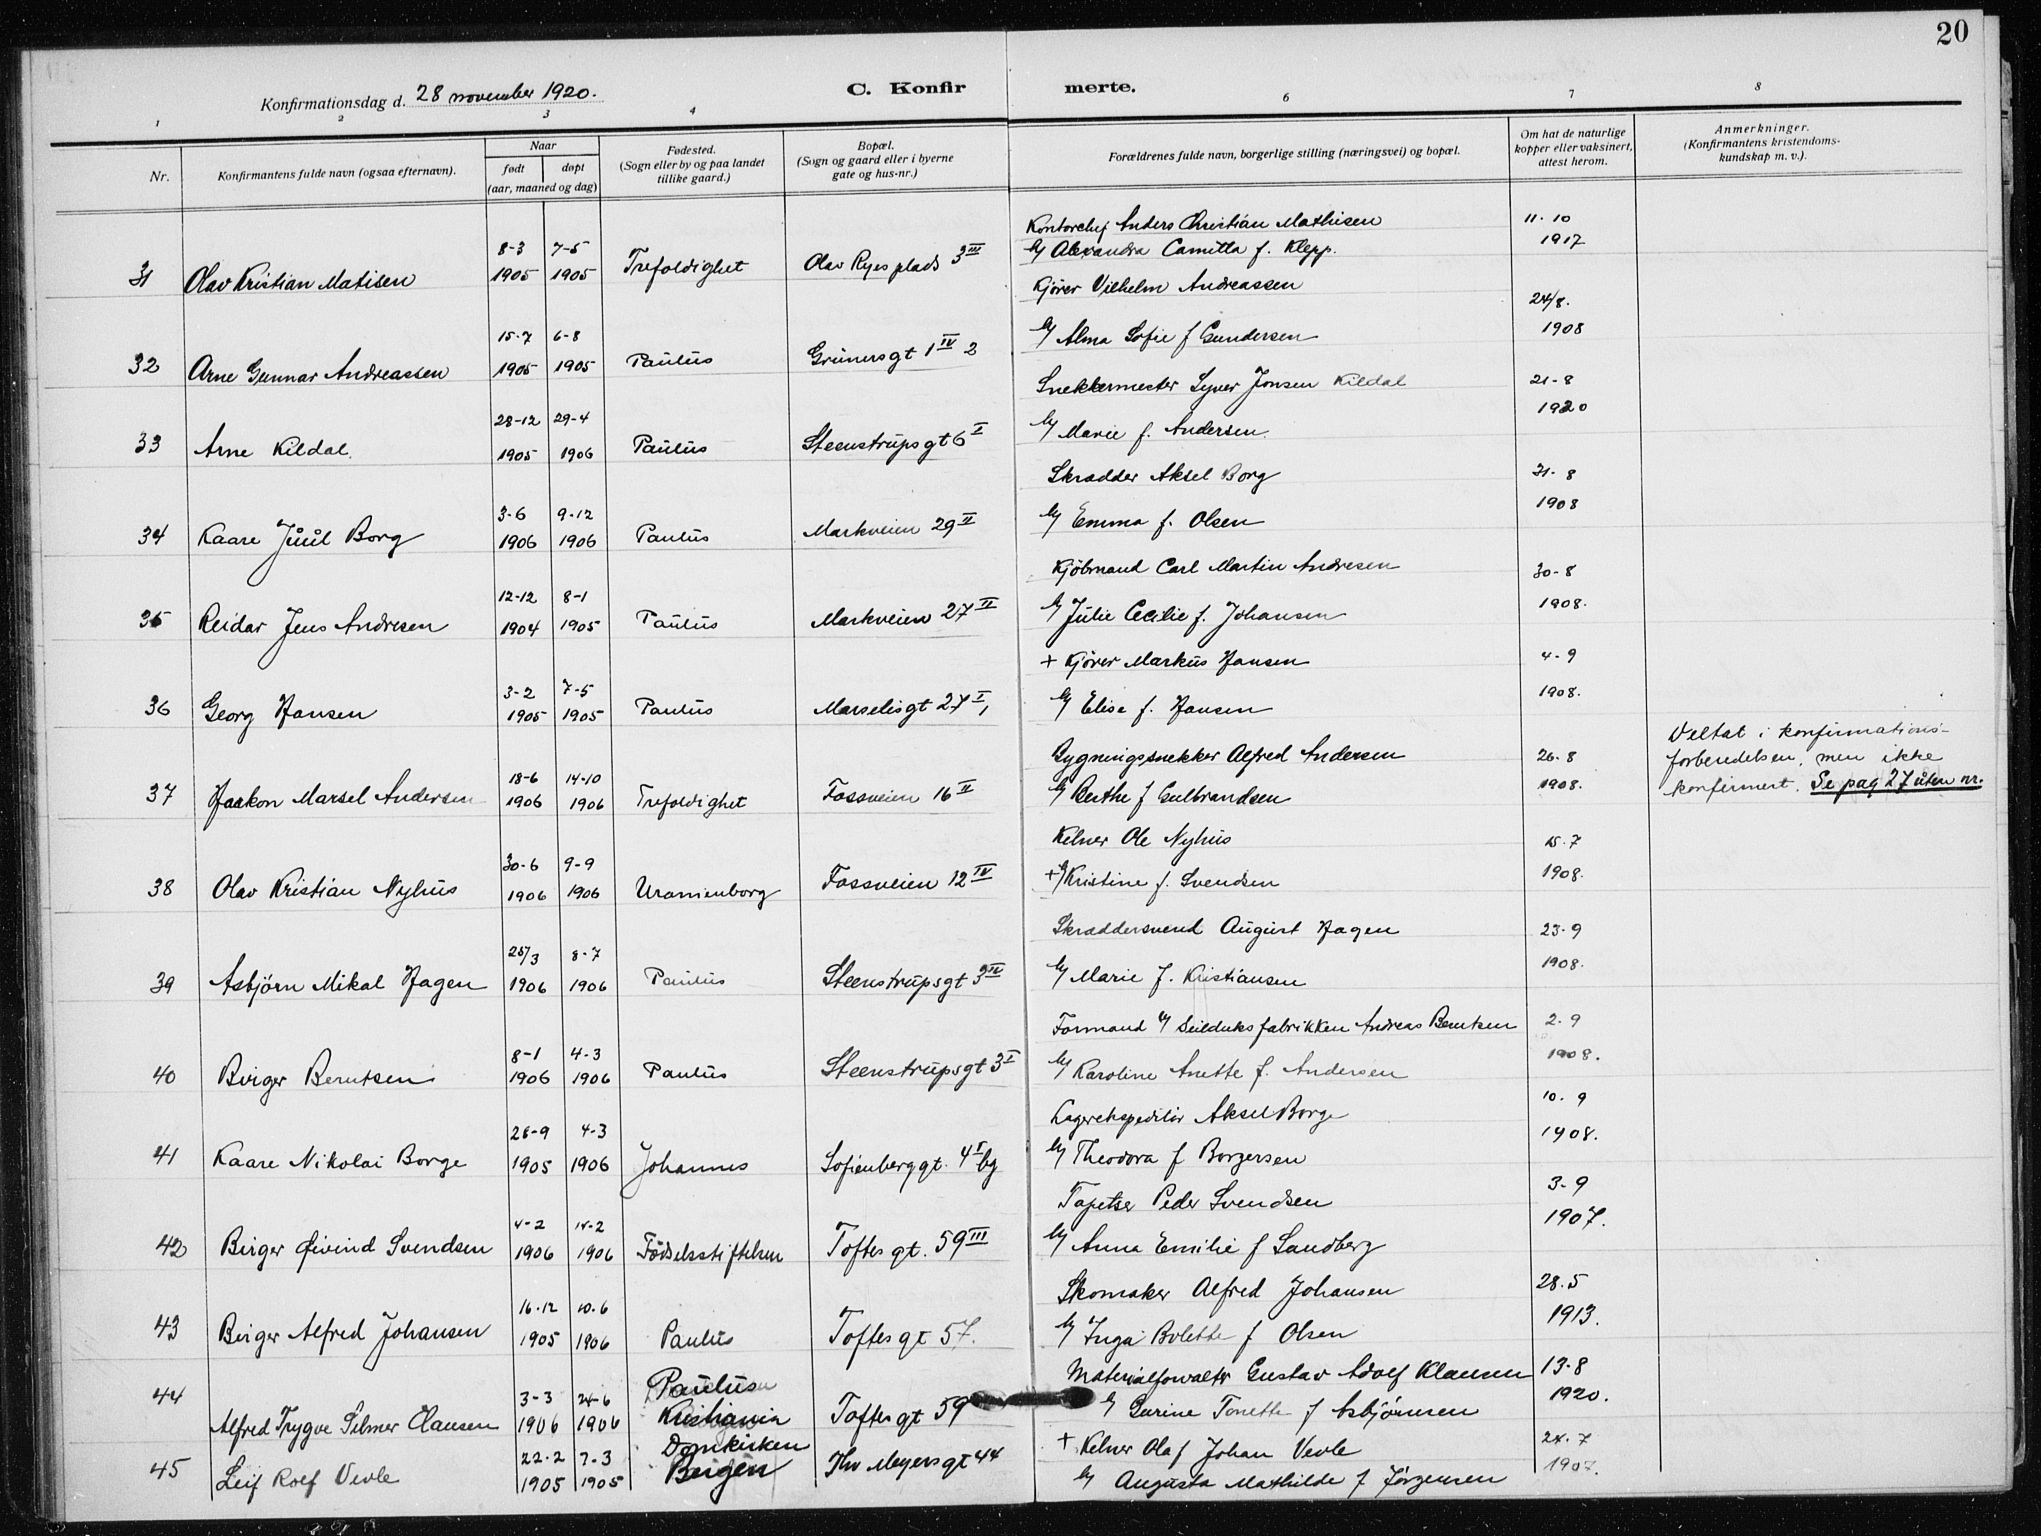 20
Konfirmationsdag d. 28 november 1920.
C. Konfir merte.
1 2 3 4 6 7 8
Nr.
Konfirmantens fulde navn (ogsaa efternavn).
Naar
født døpt
(aar, maaned og dag)
Fødested.
(Sogn eller by og paa landet
tillike gaard.)
Bopæl.
(Sogn og gaard eller i byerne
gate og hus-nr.)
Forældrenes fulde navn, borgerlige stilling (næringsvei) og bopæl.
Om hat de naturlige
kopper eller vaksinert,
attest herom.
Anmerkninger.
(Konfirmantens kristendoms-
kundskap m. v.).
Kontorchef Anders Christian Mathisen 11-10
8-3 7-5 Alexandra Camilla f. Klepp. 1917
31 Olav Kristian Matisen 1905 1905 Trefoldighet Olav Ryes plads 3 III
Kjører Vilhelm Andreassen 24/8.
15-7 6-8 Alma Sofie f Gundersen 1908
32 Arne Gunnar Andreassen 1905 1905 Paulus Grünersgt 1 IV 2
Snekkermester Syver Jonsen Kildal 21-8
28-12 29-4 Marie f. Andersen 1920
33 Arne Kildal. 1905 1906 Paulus Steenstrupsgt 6 I
Skrædder Aksel Borg 31-8
3-6 9-12 Emma f. Olsen 1908
34 Kaare Juul Borg 1906 1906 Paulus Markveien 29 II
Kjöbmand Carl Martin Andresen 30-8
12-12 8-1 Julie Cecilie f. Johansen 1908.
35 Reidar Jens Andresen 1904 1905 Paulus Markveien 27 II
+ Kjører Markus Hansen 4-9
3-2 7-5 Elise f. Hansen 1908.
36 Georg Hansen 1905 1905 Paulus Marselisgt 27 I,
Bygningssnekker Alfred Andersen 26-8 Deltat i konfirmations-
18-6 14-10 Berthe f Gulbrandsen 1908. forberedelsen, men ikke
37 Haakon Marsel Andersen 1906 1906 Trefoldighet Fossveien 16 II konfirmert. Se pag 27 uten nr.
Kelner Ole Nyhus 15-7
30-6 9-9 + Kristine f. Svendsen 1908.
38 Olav Kristian Nyhus 1906 1906 Uranienborg Fossveien 12 IV
Skræddersvend August Hagen 23-9
25/3 8-7 Marie f. Kristiansen 1908.
39 Asbjörn Mikal Hagen 1906 1906 Paulus Steenstrupsgt 3 IV
Formand v/ Seilduksfabrikken Andreas Berntsen 2-9
8-1 4-3 Karoline Anette f. Andersen 1908.
40 Birger Berntsen 1906 1906 Paulus Steenstrupsgt 3 I
Lagerekspeditör Aksel Borge 10-9
26-9 4-3 Theodora f Borgersen 1908.
41 Kaare Nikolai Borge 1905 1906 Johannes Sofienberggt. 4 I bg
Tapetser Peder Svendsen 3-9
4-2 14-2 Anna Emilie f Sandberg 1907.
42 Birger Öivind Svendsen 1906 1906 Födselsstiftelsen Toftes gt. 59 III
Skomaker Alfred Johansen 28-5
16-12 10-6 Inga Bolette f Olsen 1913.
43 Birger Alfred Johansen 1905 1906 Paulus Toftes gt 57.
Materialforvalter Gustav Adolf Klausen 13-8
44 3-3 24-6 Paulus Gurine Tonette f Asbjörnsen 1920.
Alfred Trygve Hilmer Clausen 1906 1906 Kristiania Toftes gt 59
+ Kelner Olaf Johan Vevle 24-7
45 22-2 7-3 Domkirken Augusta Mathilde f Jörgensen 1907.
Leif Rolf Vevle 1905 1905 Bergen Thv Meyersgt 44